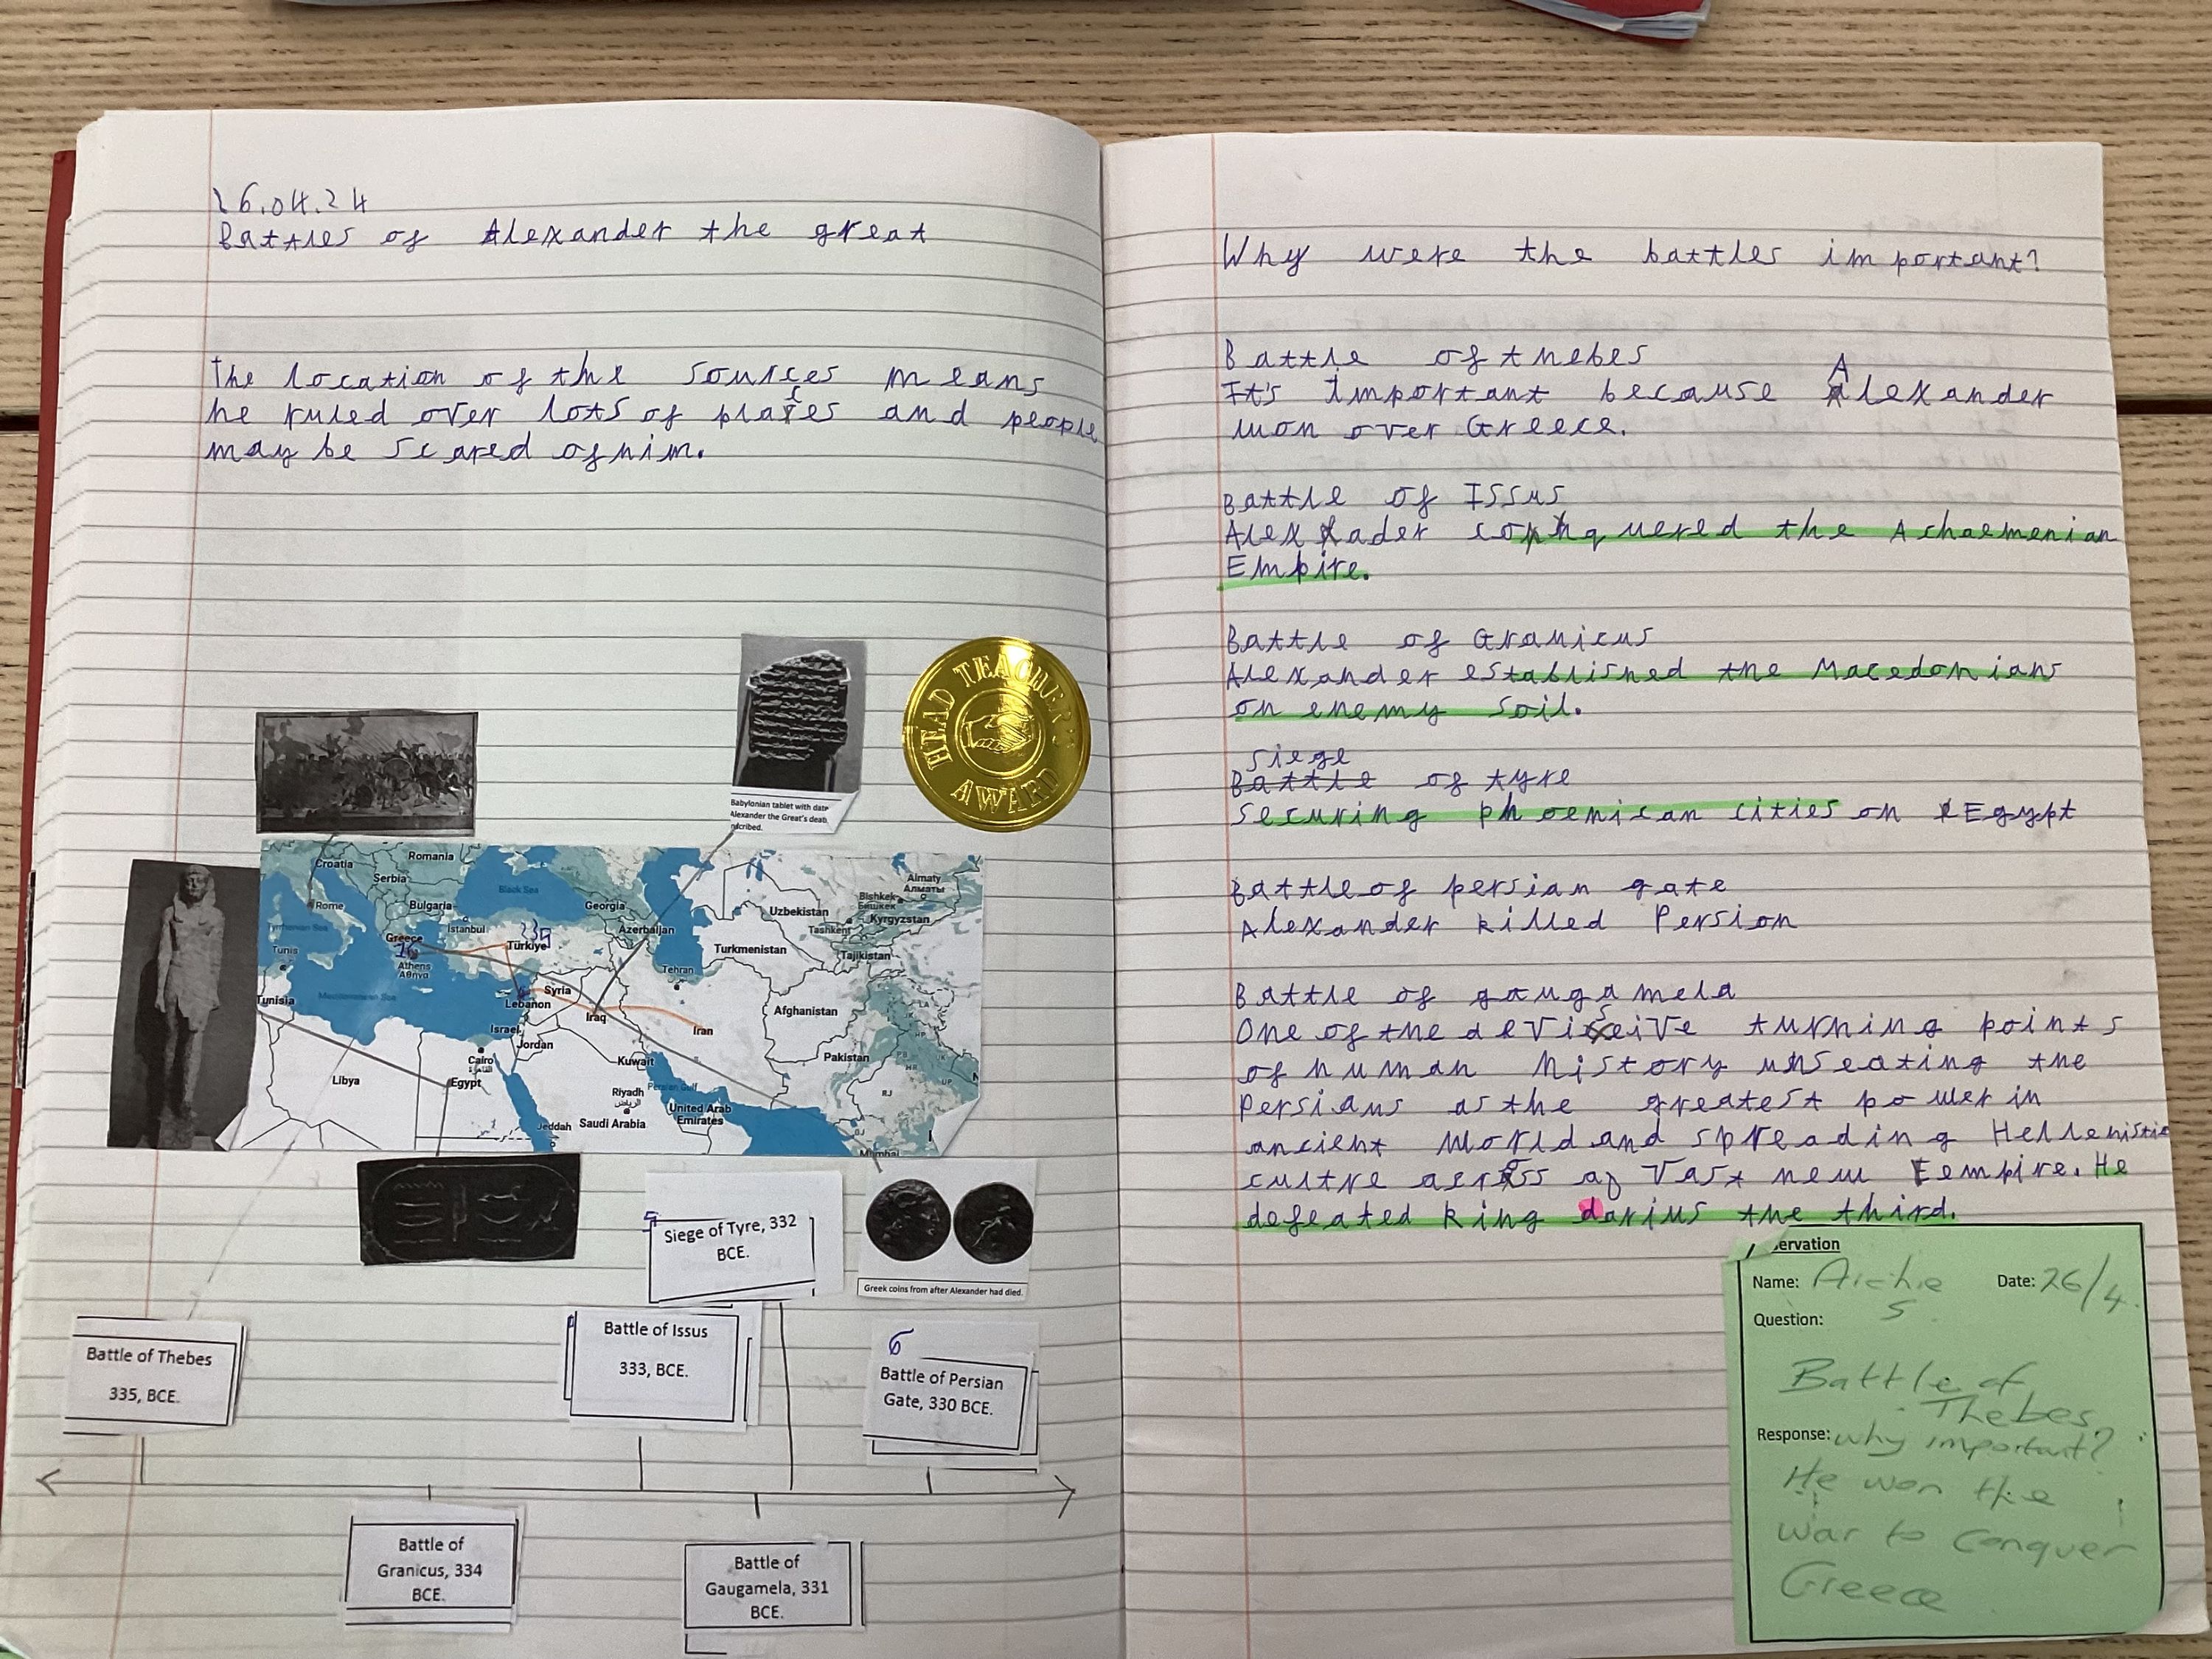 26.04.24
Battles of Alexander the great
The location of the sources means
he ruled over lots of places and people
may be scared of him.
HEAD TEACHER'S
AWARD
Babylonian tablet with date
Alexander the Great's death
Croatia
Romania
Serbia
Black Sea
Almaty
Алматы
Rome
Bulgaria
Georgia
Bishkek
Бишкек
Uzbekistan
Kyrgyzstan
Tyrrhenian Sea
Istanbul
Azerbaijan
Tashkent
Greece
Türkiye
Turkmenistan
Tunis
Athens
Αθήνα
Tajikistan
Tehran
Mediterranean Sea
Syria
Tunisia
Lebanon
Iraq
Iran
Afghanistan
Israel
Jordan
Cairo
القاهرة
Kuwait
Pakistan
Libya
Egypt
Persian Gulf
Riyadh
الرياض
United Arab
Emirates
RJ
UP
Jeddah
Saudi Arabia
GJ
Mumbai
5
Siege of Tyre, 332
BCE.
Greek coins from after Alexander had died.
Battle of Thebes
335, BCE.
Battle of Issus
333, BCE.
6
Battle of Persian
Gate, 330 BCE.
Battle of
Granicus, 334
BCE.
Battle of
Gaugamela, 331
BCE.
Why were the battles important?
Battle of thebes
It's Important because Alexander
won over Greece.
Battle of Issus
Alexader conquered the Achaemenian
Empire.
Battle of Granicus
Alexander established the Macedonians
on enemy soil.
siege
Battle of tyre
securing phoenican cities on Egypt
Battle of persian gate
Alexander killed Persion
Battle of gaugamela
One of the devisive turning points
of human history unseating the
Persians as the greatest power in
ancient world and spreading Hellenistic
cultre across of Vast new Eempire. He
defeated king darius the third.
ervation
Name: Archie S
Date: 26/4.
Question:
Battle of
Thebes
Response: why important?
He won the
war to conquer
Greece